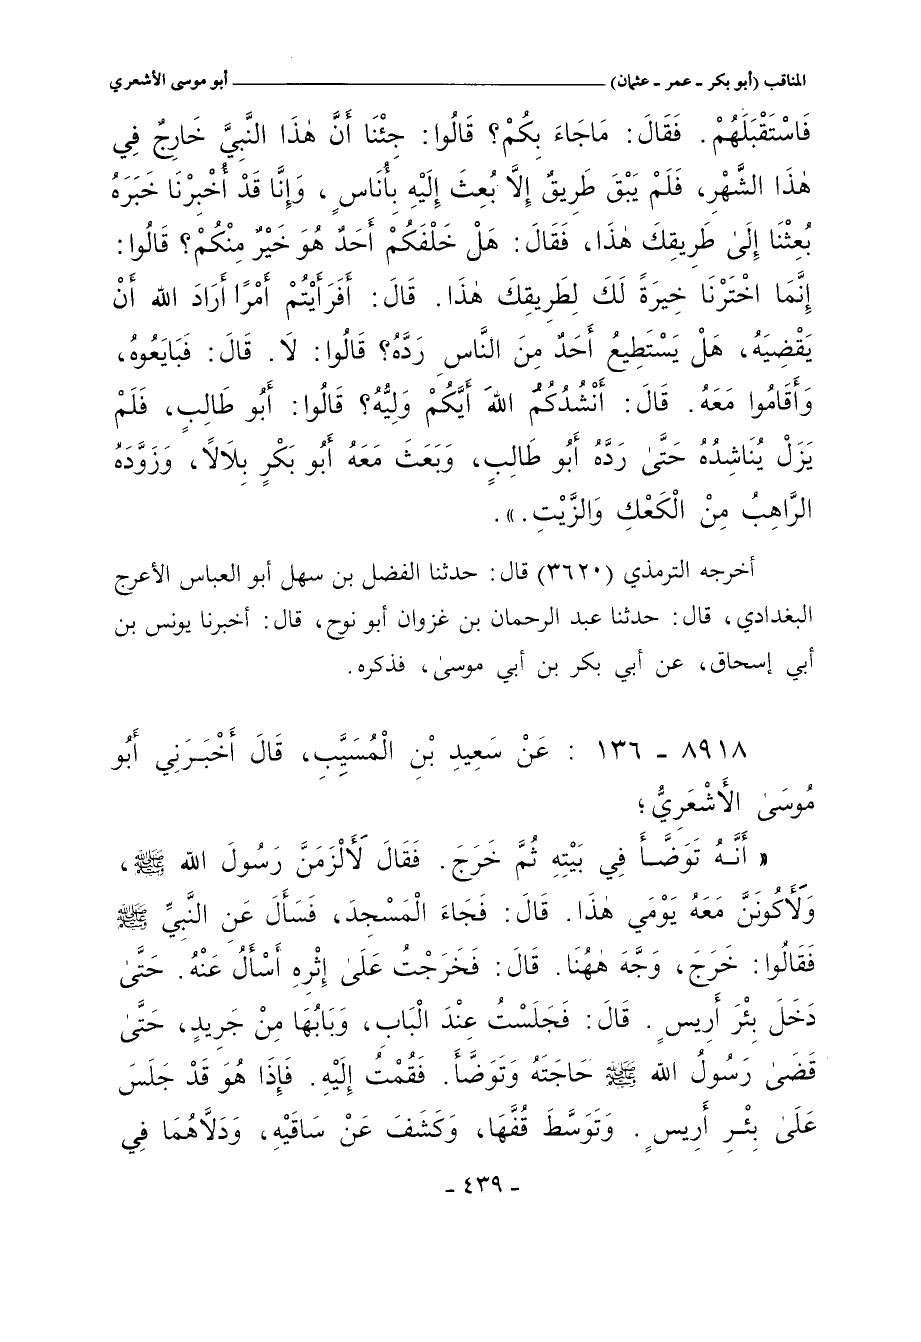 المناقب (أبو بكر - عمر - عثمان) ــــــــــــ أبو موسى الأشعري
فَاسْتَقْبَلَهُمْ. فَقَالَ: مَاجَاءَ بِكُمْ؟ قَالُوا: جِئْنَا أَنَّ هٰذَا النَّبِيَّ خَارِجٌ فِي
هٰذَا الشَّهْرِ، فَلَمْ يَبْقَ طَرِيقٌ إِلَّا بُعِثَ إِلَيْهِ بِأُنَاسٍ، وَإِنَّا قَدْ أُخْبِرْنَا خَبَرَهُ
بُعِثْنَا إِلَىٰ طَرِيقِكَ هٰذَا، فَقَالَ: هَلْ خَلْفَكُمْ أَحَدٌ هُوَ خَيْرٌ مِنْكُمْ؟ قَالُوا:
إِنَّمَا اخْتَرْنَا خِيرَةً لَكَ لِطَرِيقِكَ هٰذَا. قَالَ: أَفَرَأَيْتُمْ أَمْرًا أَرَادَ الله أَنْ
يَقْضِيَهُ، هَلْ يَسْتَطِيعُ أَحَدٌ مِنَ النَّاسِ رَدَّهُ؟ قَالُوا: لَا. قَالَ: فَبَايَعُوهُ،
وَأَقَامُوا مَعَهُ. قَالَ: أَنْشُدُكُمُ اللهَ أَيُّكُمْ وَلِيُّهُ؟ قَالُوا: أَبُو طَالِبٍ، فَلَمْ
يَزَلْ يُنَاشِدُهُ حَتَّىٰ رَدَّهُ أَبُو طَالِبٍ، وَبَعَثَ مَعَهُ أَبُو بَكْرٍ بِلَالًا، وَزَوَّدَهُ
الرَّاهِبُ مِنْ الْكَعْكِ وَالزَّيْتِ.».
أخرجه الترمذي (٣٦٢٠) قال: حدثنا الفضل بن سهل أبو العباس الأعرج
البغدادي، قال: حدثنا عبد الرحمان بن غزوان أبو نوح، قال: أخبرنا يونس بن
أبي إسحاق، عن أبي بكر بن أبي موسىٰ، فذكره.
٨٩١٨ - ١٣٦ : عَنْ سَعِيدِ بْنِ الْمُسَيَّبِ، قَالَ أَخْبَرَنِي أَبُو
مُوسَىٰ الأَشْعَرِيُّ؛
« أَنَّهُ تَوَضَّأَ فِي بَيْتِهِ ثُمَّ خَرَجَ. فَقَالَ لَأَلْزَمَنَّ رَسُولَ الله ﷺ،
وَلَأَكُونَنَّ مَعَهُ يَوْمَي هٰذَا. قَالَ: فَجَاءَ الْمَسْجِدَ، فَسَأَلَ عَنِ النَّبِيِّ ﷺ
فَقَالُوا: خَرَجَ، وَجَّهَ هٰهُنَا. قَالَ: فَخَرَجْتُ عَلَىٰ إِثْرِهِ أَسْأَلُ عَنْهُ. حَتَّىٰ
دَخَلَ بِئْرَ أَرِيسٍ. قَالَ: فَجَلَسْتُ عِنْدَ الْبَابِ، وَبَابُهَا مِنْ جَرِيدٍ، حَتَّىٰ
قَضَىٰ رَسُولُ الله ﷺ حَاجَتَهُ وَتَوَضَّأَ. فَقُمْتُ إِلَيْهِ. فَإِذَا هُوَ قَدْ جَلَسَ
عَلَىٰ بِئْرِ أَرِيسٍ. وَتَوَسَّطَ قُفَّهَا، وَكَشَفَ عَنْ سَاقَيْهِ، وَدَلَّاهُمَا فِي
- ٤٣٩ -